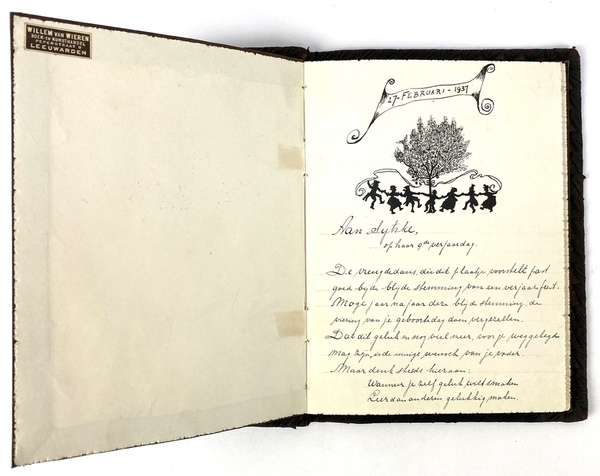 WILLEM VAN WIEREN
BOEK- EN KUNSTHANDEL
PEPERSTRAAT
LEEUWARDEN
27-FEBRUARI-1937
Aan Sytske,
op haar 9de verjaardag.
De vreugdedans, die dit plaatje voorstelt past
goed bij de blijde stemming van een verjaarfeest.
Moge jaar na jaar deze blijde stemming, de
viering van je geboortedag doen vergezellen.
Dat dit geluk en nog veel meer, voor je weggelegd
mag zijn, is de innige wensch van je vader.
Maar denk steeds hieraan:
Wanneer je zelf geluk wilt smaken
Leer dan anderen gelukkig maken.